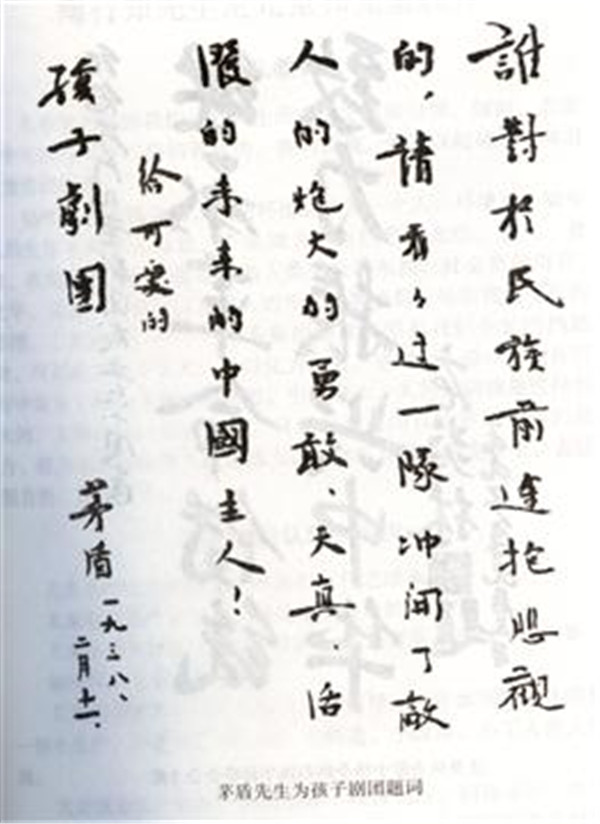 誰對於民族前途抱悲觀
的，請看々这一隊冲開了敵
人的炮火的勇敢、天真、活
潑的未来的中國主人！
给可愛的
孩子劇團
茅盾 一九三八、
二月十一、
茅盾先生为孩子剧团题词